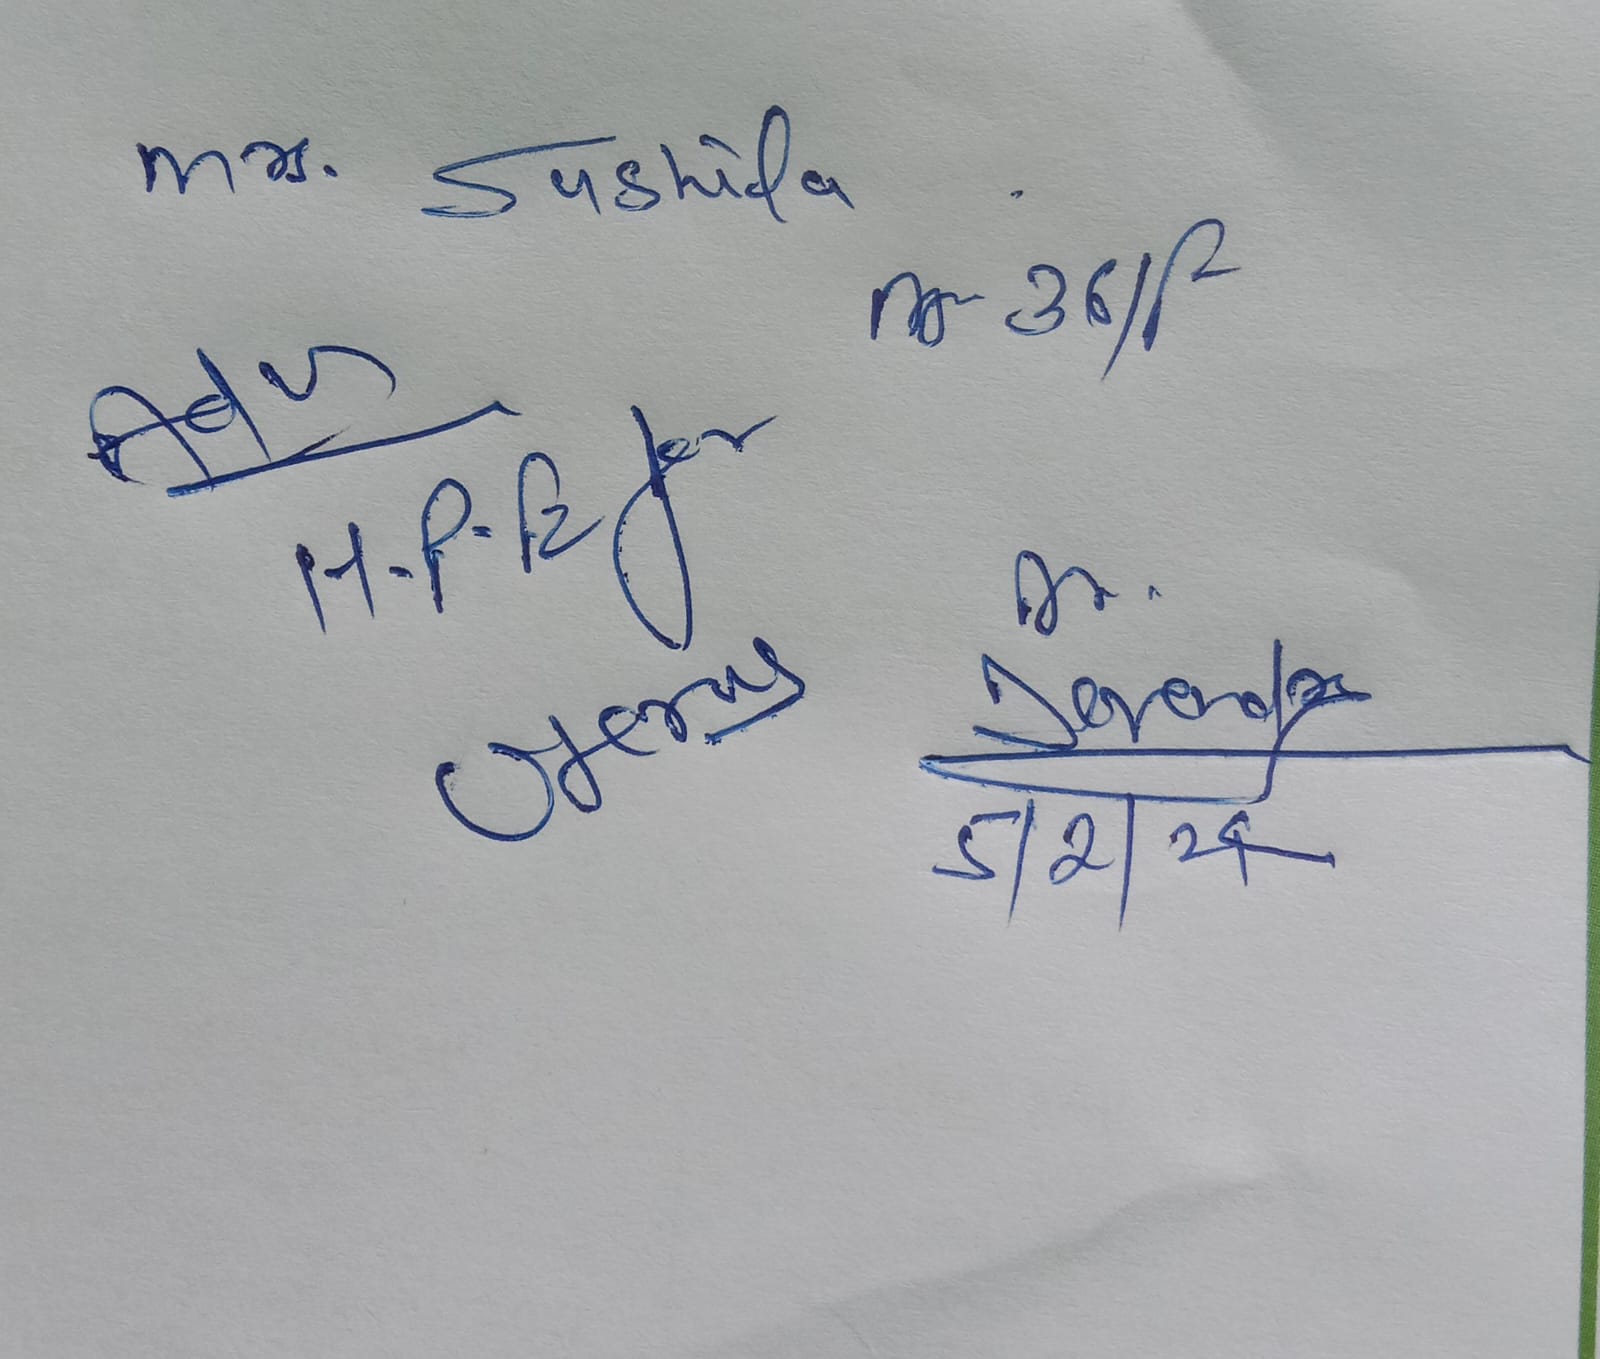 Mrs. Sushila
36/F
Adv
H.P.E for
Uterus
Dr.
Devendra
5/2/24